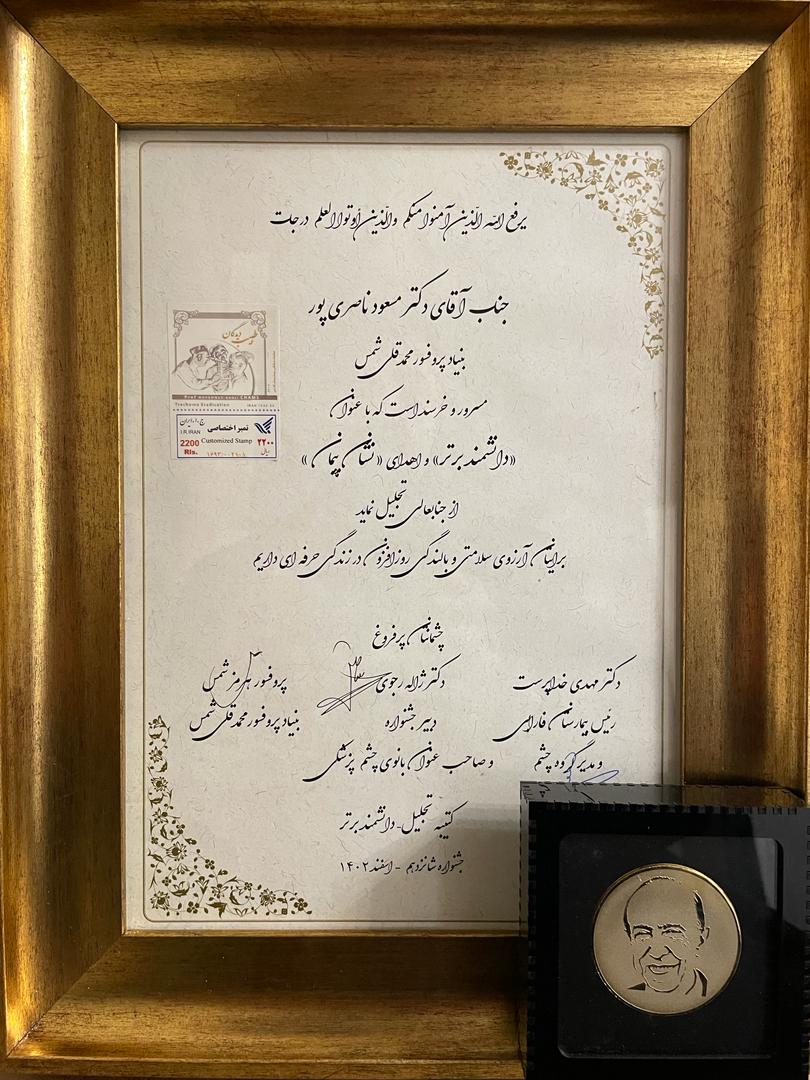 یرفع الله الذین آمنوا منکم والذین أوتوا العلم درجات
جناب آقای دکتر مسعود ناصری پور
بنیاد پروفسور محمدقلی شمس
مسرور و خرسند است که با عنوان
«دانشمند برتر» و اهدای «نشان پیمان»
از جنابعالی تجلیل نماید
برایتان آرزوی سلامتی و بالندگی روزافزون در زندگی حرفه ای داریم
چشمانتان پرفروغ
دکتر مهدی خداپرست
رئیس بیمارستان فارابی
و مدیر گروه چشم
دکتر ژاله رجوی
دبیر جشنواره
و صاحب عنوان بانوی چشم پزشکی
پروفسور هرمز شمس
بنیاد پروفسور محمدقلی شمس
کتیبه تجلیل - دانشمند برتر
جشنواره شانزدهم - اسفند ۱۴۰۲
Prof MOHAMMAD-GHOLI CHAMS
Trachoma Eradication
ج.ا.ایران
I.R.IRAN
تمبر اختصاصی
Customized Stamp
2200
Rls.
۲۲۰۰
ریال